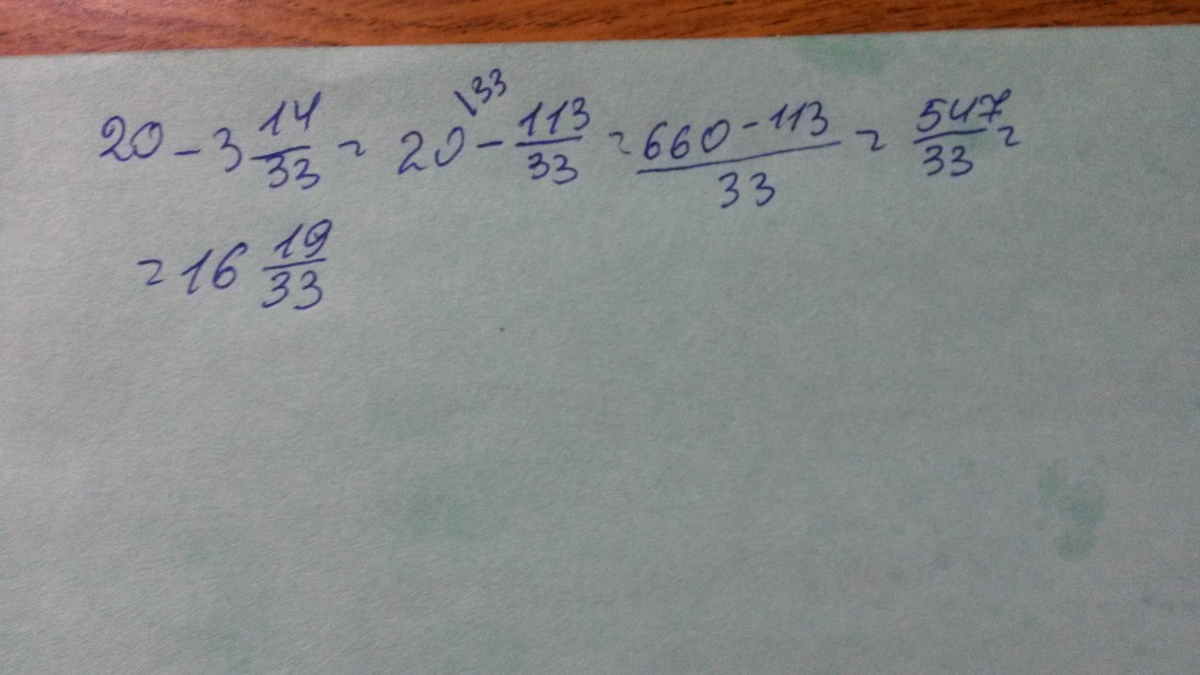 20 - 3 14/33 = 20 \33 - 113/33 = 660 - 113/33 = 547/33 =
= 16 19/33